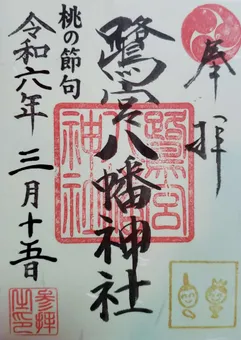 奉拝
鷺宮八幡神社
桃の節句
令和六年 三月十五日
鷺宮八幡神社
参拝之印